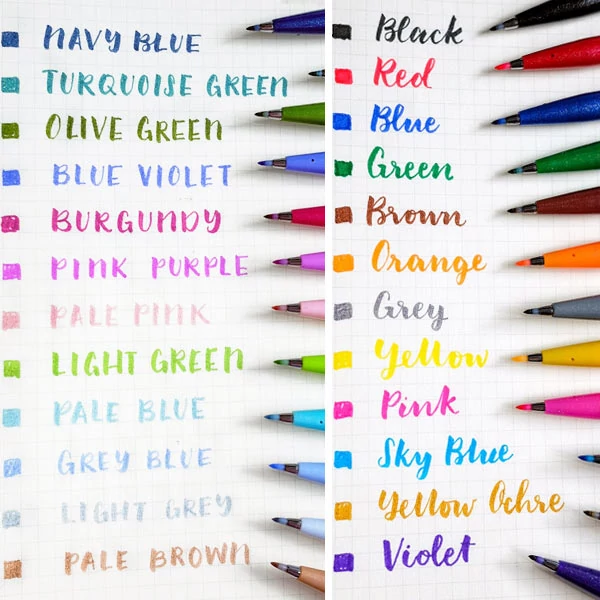 NAVY BLUE
TURQUOISE GREEN
OLIVE GREEN
BLUE VIOLET
BURGUNDY
PINK PURPLE
PALE PINK
LIGHT GREEN
PALE BLUE
GREY BLUE
LIGHT GREY
PALE BROWN
Black
Red
Blue
Green
Brown
Orange
Grey
Yellow
Pink
Sky Blue
Yellow Ochre
Violet